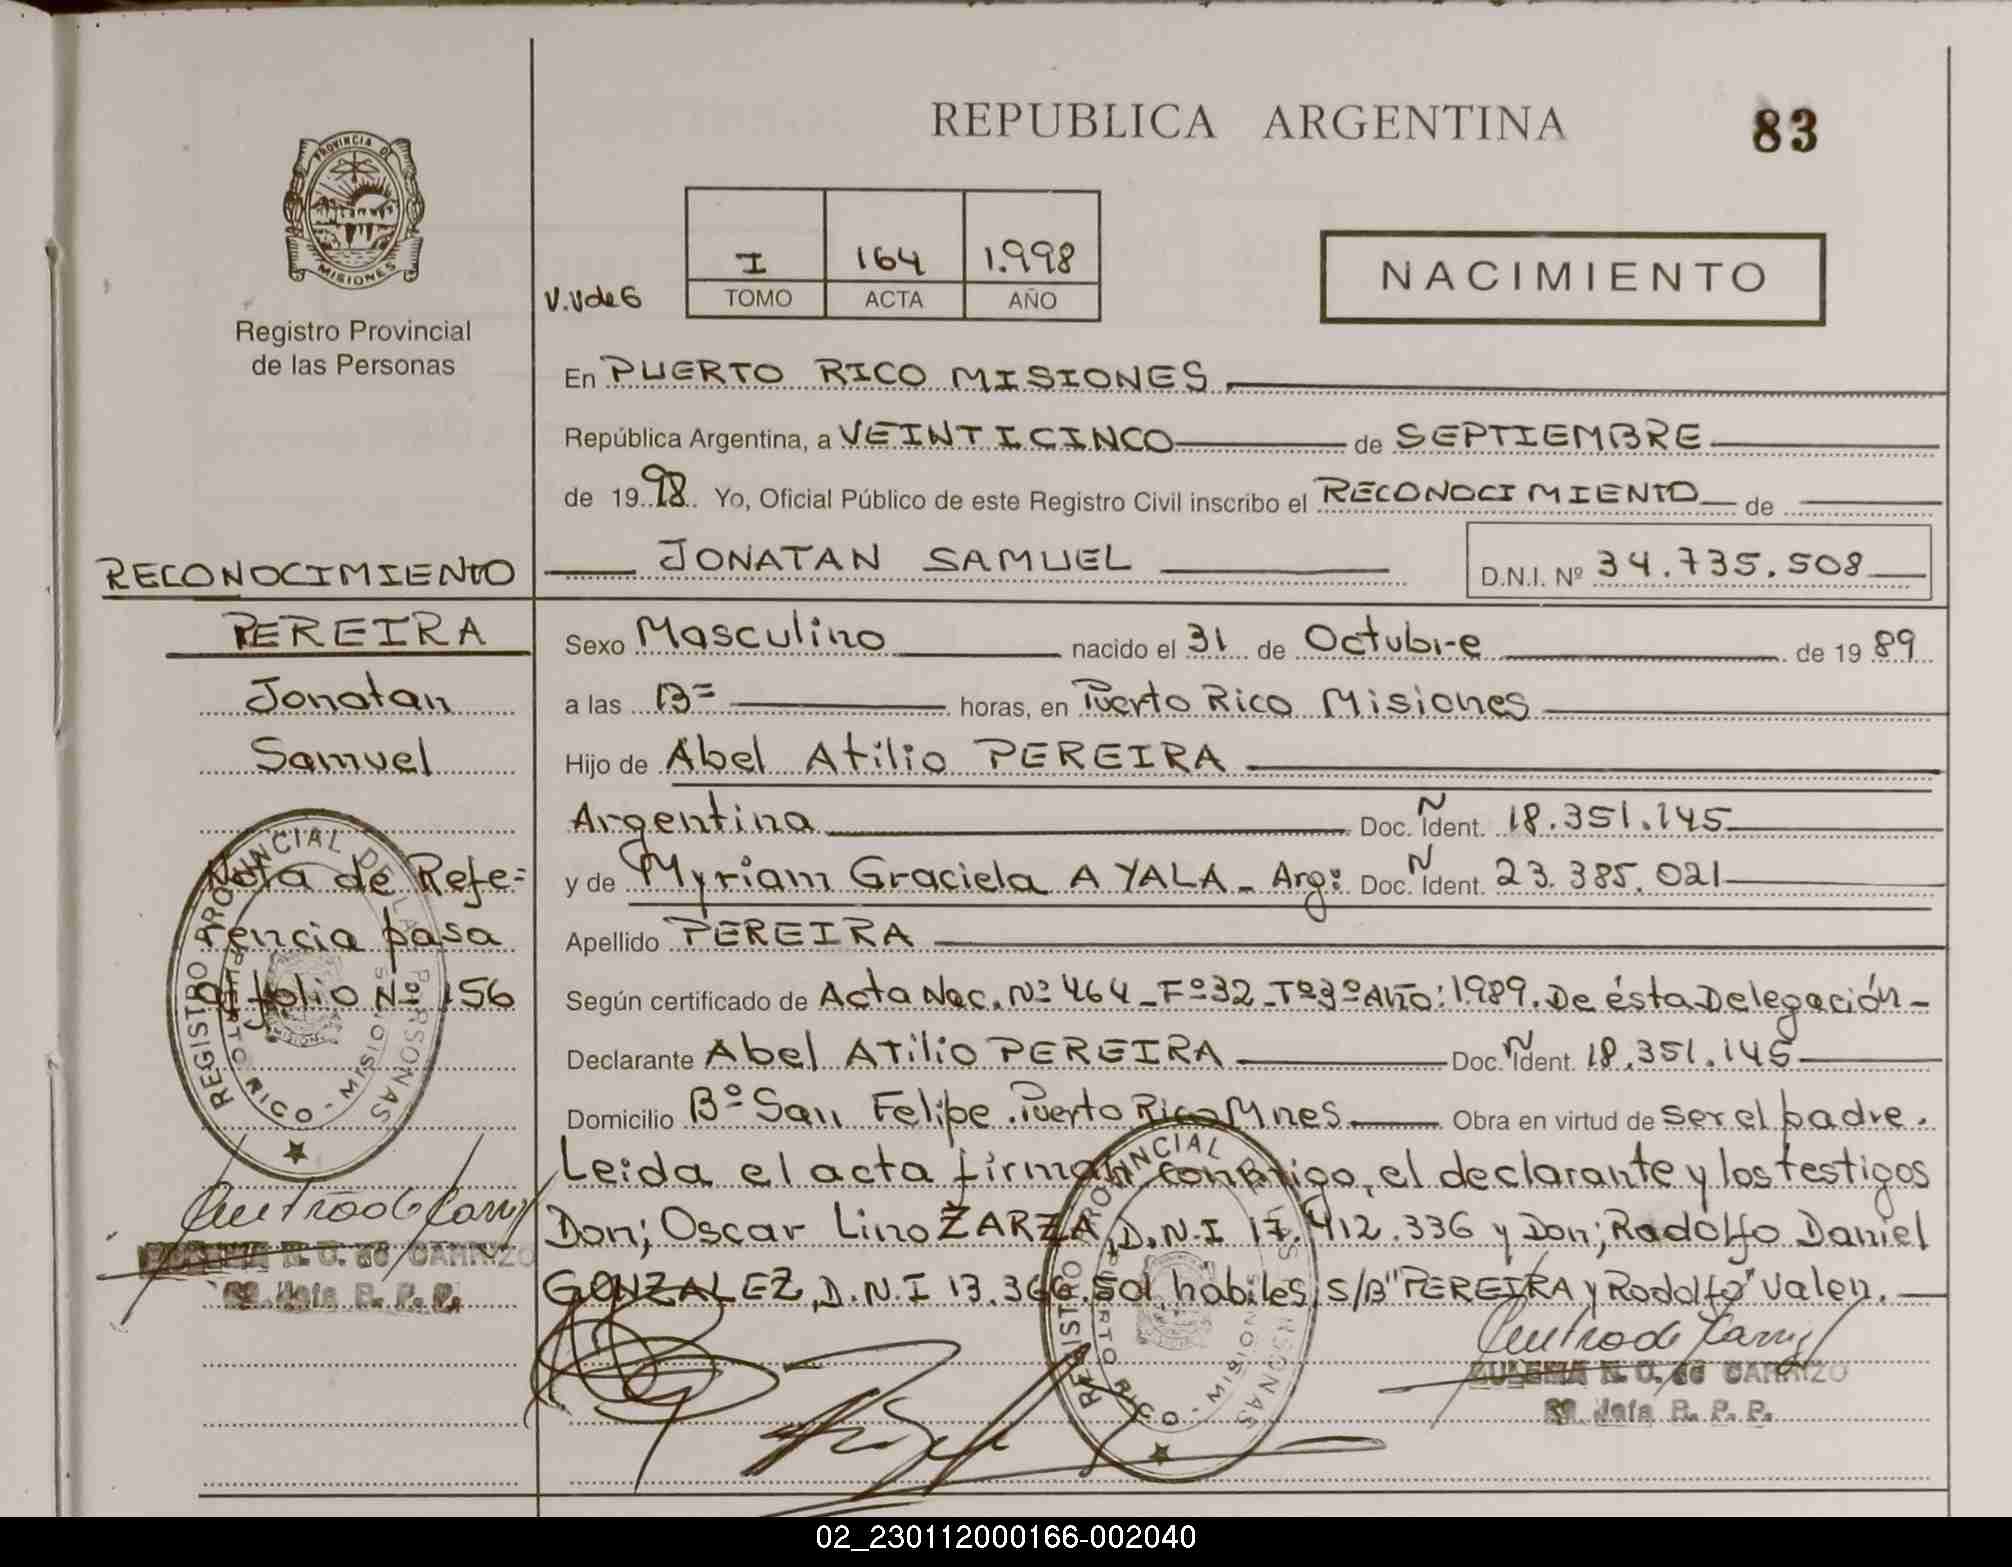 REPUBLICA ARGENTINA
83
PROVINCIA DE
MISIONES
Registro Provincial
de las Personas
V.VdeG
I 164 1.998
TOMO ACTA AÑO
NACIMIENTO
En PUERTO RICO MISIONES
República Argentina, a VEINTICINCO de SEPTIEMBRE
de 19 98 Yo, Oficial Público de este Registro Civil inscribo el RECONOCIMIENTO de
JONATAN SAMUEL D.N.I. Nº 34.735.508
RECONOCIMIENTO
PEREIRA
Jonatan
Samuel
Nota de Refe=
rencia pasa
al folio Nº 156
Sexo Masculino nacido el 31 de Octubre de 19 89
a las 13= horas, en Puerto Rico Misiones
Hijo de Abel Atilio PEREIRA
Argentina Doc. Ident. 18.351.145
y de Myriam Graciela AYALA - Arg: Doc. Ident. 23.385.021
Apellido PEREIRA
Según certificado de Acta Nac. Nº 464 - Fº 32 - Tº 3º Año: 1989. De ésta Delegación -
Declarante Abel Atilio PEREIRA Doc. Ident. 18.351.145
Domicilio Bº San Felipe. Puerto Rico Mnes Obra en virtud de ser el padre.
Leida el acta firman conmigo, el declarante y los testigos
Don; Oscar Lino ZARZA, D.N.I 17.412.336 y Don; Radolfo Daniel
GONZALEZ, D.N.I 13.366.501, habiles, S/B "PEREIRA y Rodolfo" Valen.
REGISTRO PROVINCIAL DE LAS PERSONAS
PUERTO RICO - MISIONES
ZULEMA N. O. de CARRIZO
Jefa R. P. P.
REGISTRO PROVINCIAL DE LAS PERSONAS
PUERTO RICO - MISIONES
ZULEMA N. O. de CARRIZO
Jefa R. P. P.
02_230112000166-002040